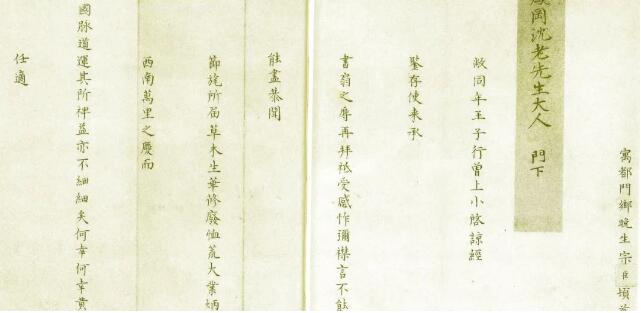 寓都門鄉晚生宗臣頓首
岡沈老先生大人 門下
敝同年王子行曾上小啓諒經
鑒存使來承
書翁之辱再拜祗受感怍彌襟言不能
能盡恭聞
節旄所届草木生華修廢恤荒大業炳
西南萬里之慶而
國脉道運其所裨益亦不細細矣何幸何幸貴
任適